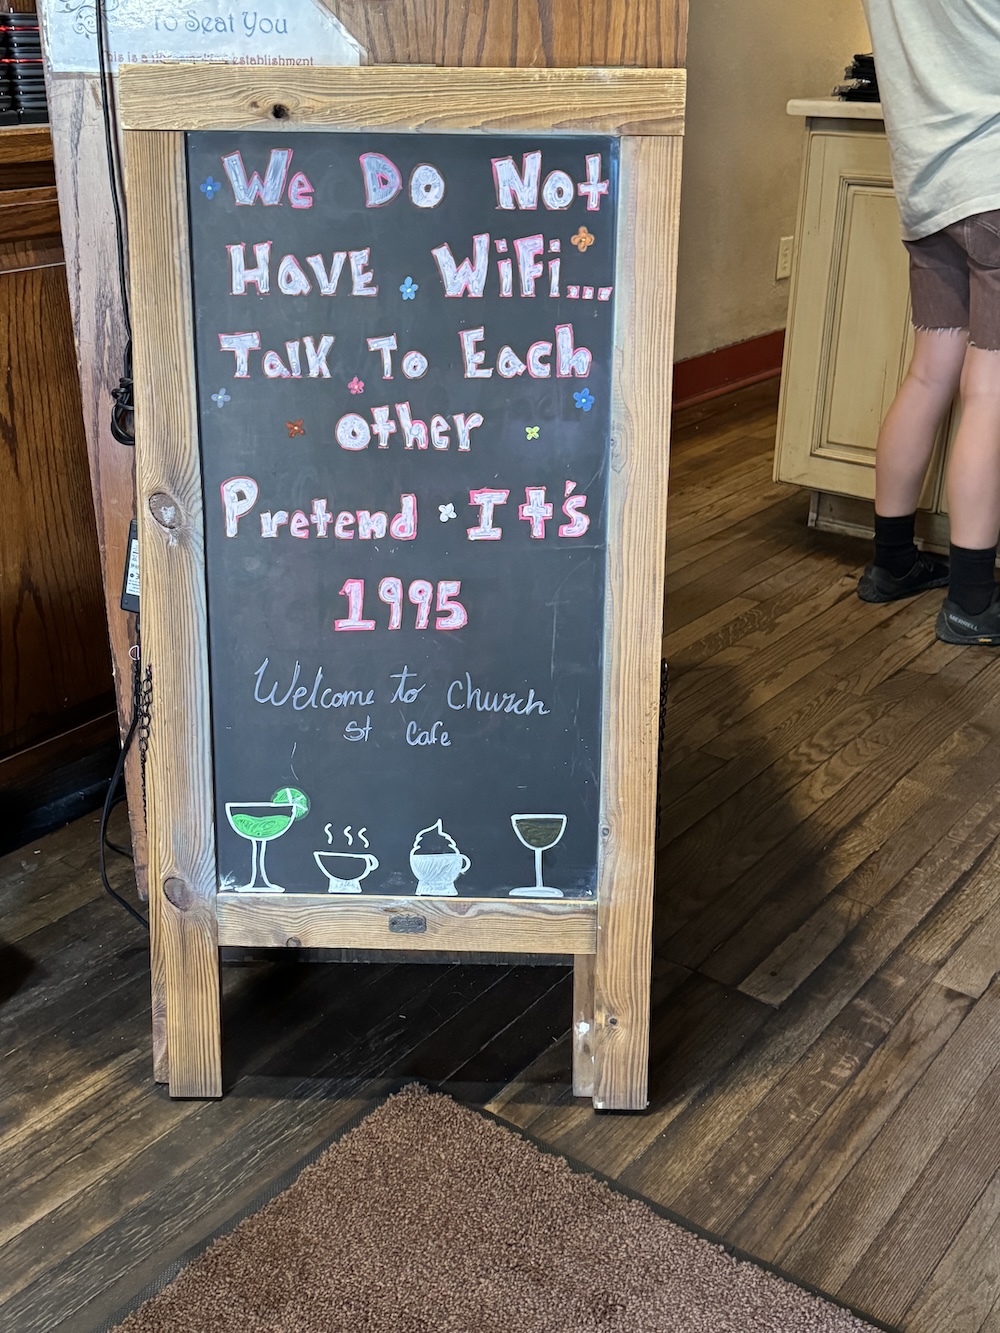 To Seat You
establishment
We Do Not
Have WiFi...
Talk To Each
other
Pretend It's
1995
Welcome to Church
St Cafe
MERRELL